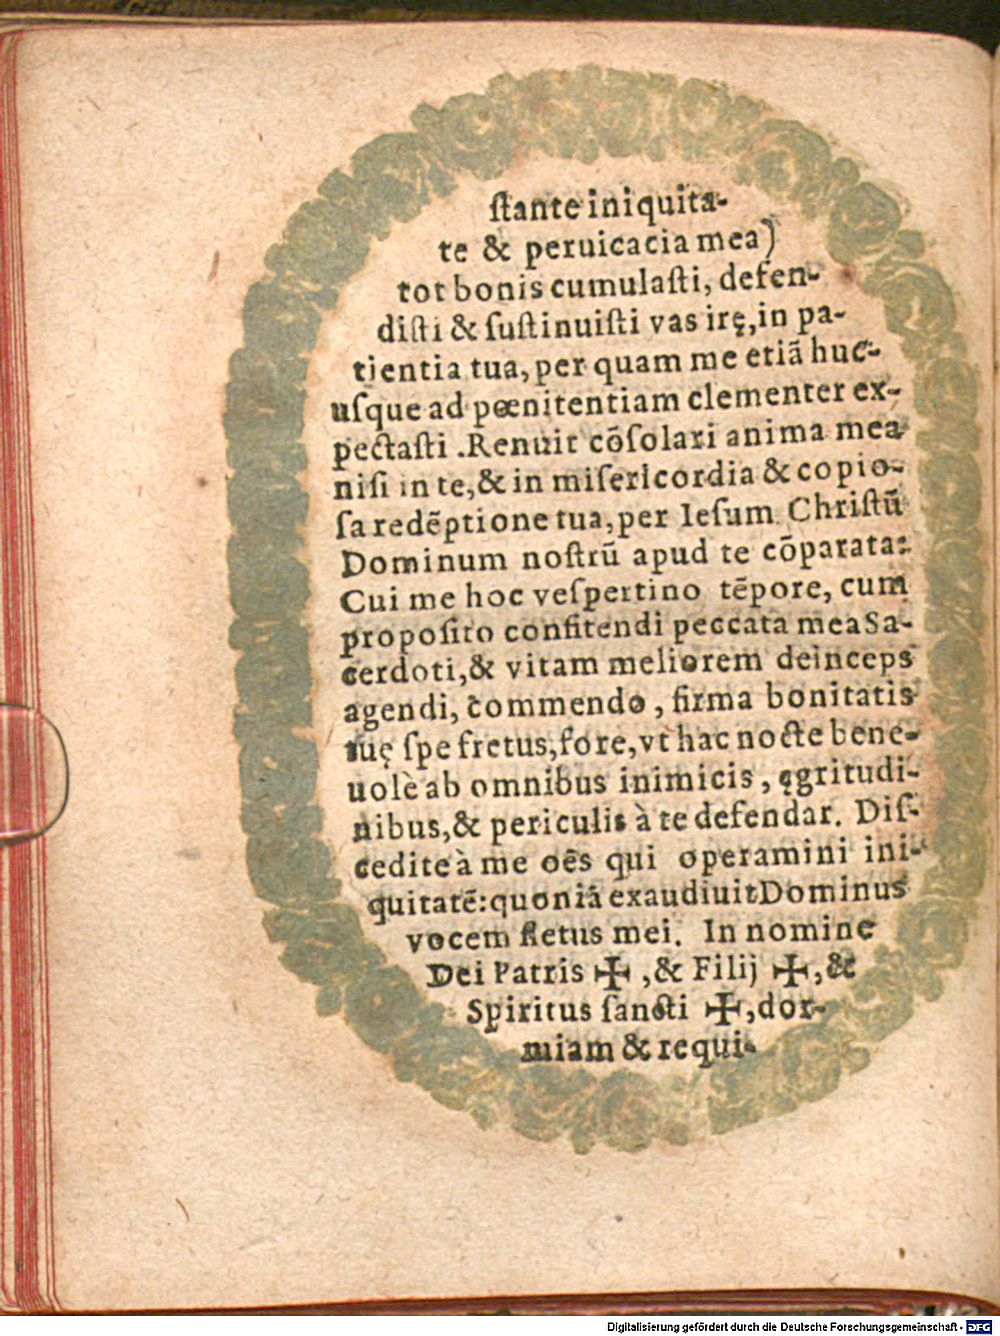 ſtante iniquita-
te & peruicacia mea)
tot bonis cumulaſti, defen-
diſti & ſuſtinuiſti vas irę, in pa-
tientia tua, per quam me etiã huc-
uſque ad pœnitentiam clementer ex-
pectaſti. Renuit cõſolari anima mea
niſi in te, & in miſericordia & copio-
ſa redẽptione tua, per Ieſum Chriſtũ
Dominum noſtrũ apud te cõparata:
Cui me hoc veſpertino tẽpore, cum
propoſito confitendi peccata mea Sa-
cerdoti, & vitam meliorem deinceps
agendi, commendo, firma bonitatis
tuę ſpe fretus, fore, vt hac nocte bene-
uolè ab omnibus inimicis, ęgritudi-
nibus, & periculis à te defendar. Diſ-
cedite à me oẽs qui operamini ini-
quitatẽ: quoniã exaudiuit Dominus
vocem fletus mei. In nomine
Dei Patris ✠, & Filij ✠, &
Spiritus ſancti ✠, dor-
miam & requi-
Digitalisierung gefördert durch die Deutsche Forschungsgemeinschaft - DFG